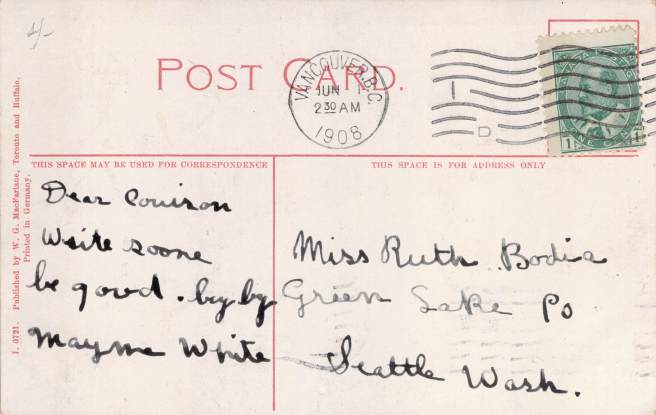 4/-
POST CARD.
VANCOUVER, B.C.
JUN 1
2 30 AM
1908
D
1
THIS SPACE MAY BE USED FOR CORRESPONDENCE
THIS SPACE IS FOR ADDRESS ONLY
Dear Couison
Write soone
be good. by by
Mayme White
Miss Ruth Bodia
Green Lake Po
Seattle Wash.
I. 0721. Published by W. G. MacFarlane, Toronto and Buffalo.
Printed in Germany.